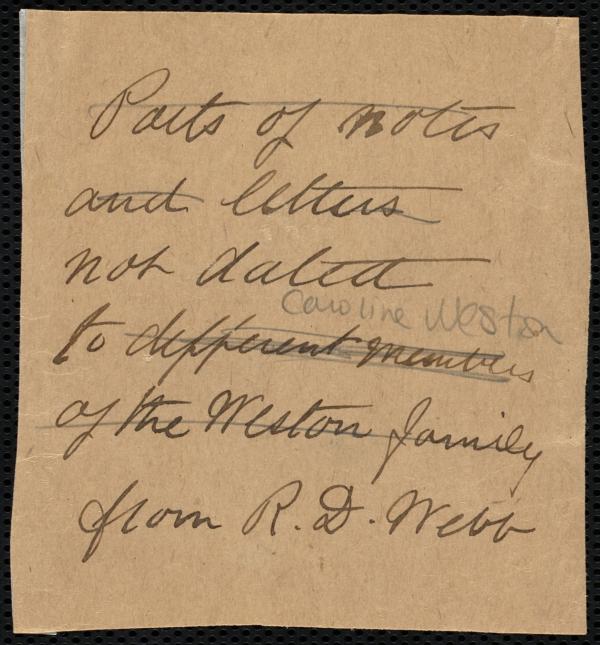 Parts of notes
and letters
not dated
Caroline Weston
to different members
of the Weston family
from R. D. Webb